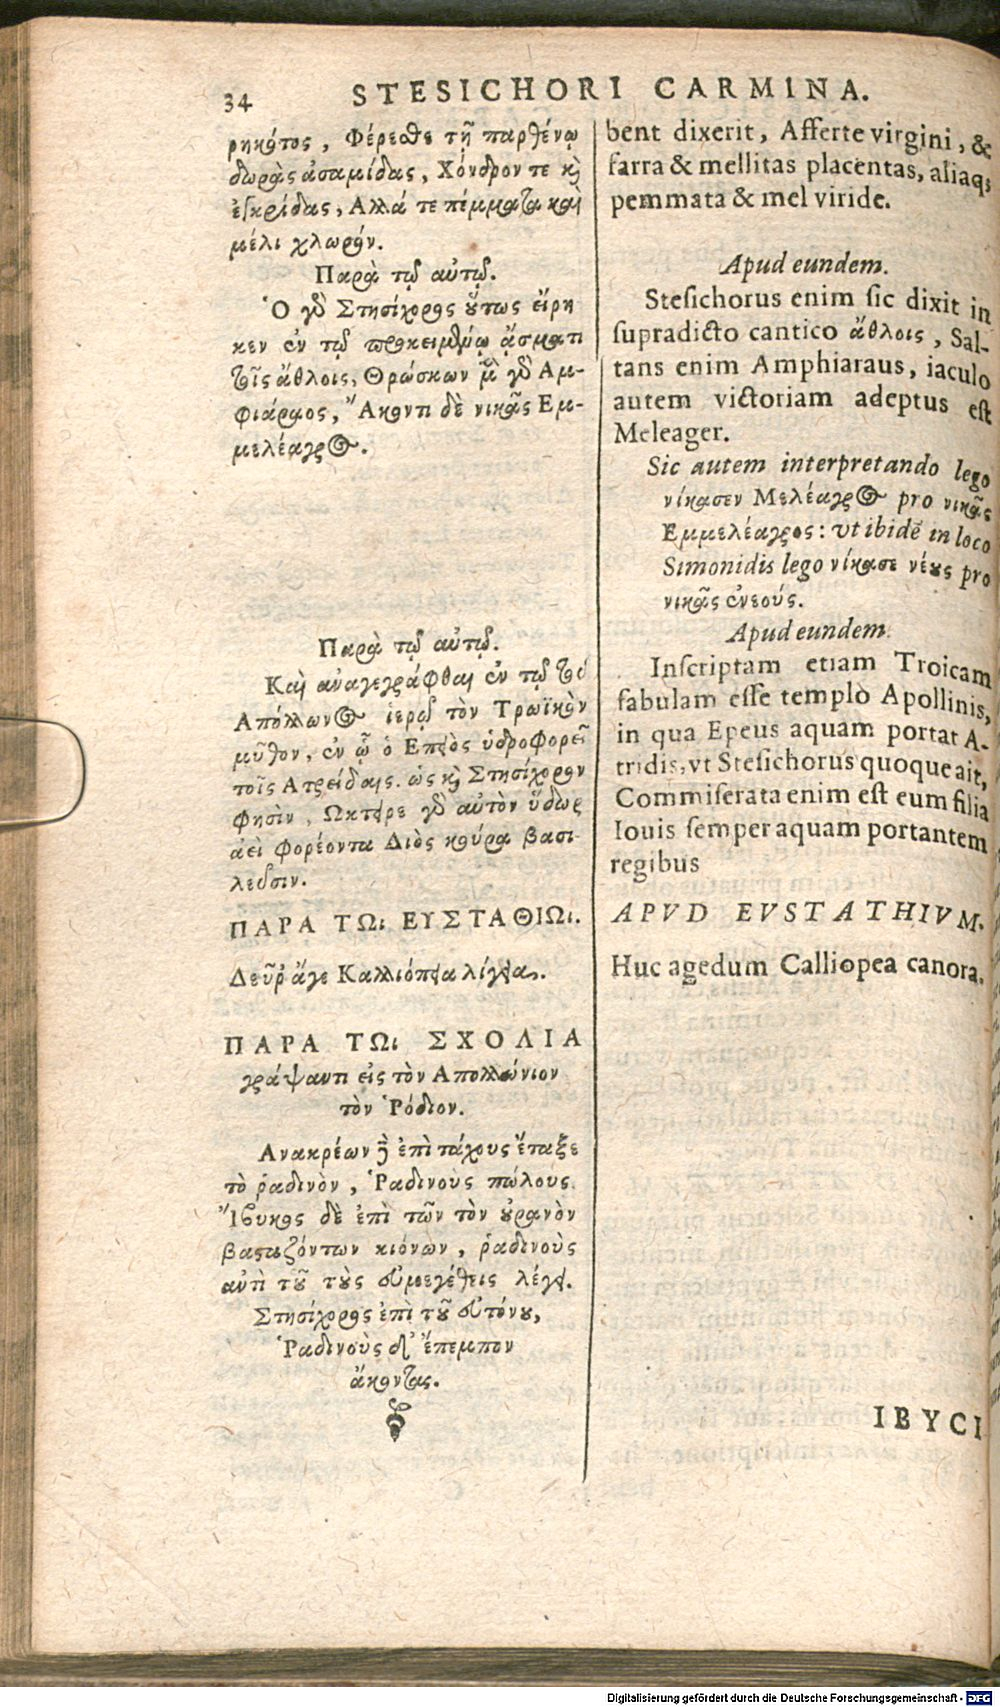 34 STESICHORI CARMINA.
ρηκότος, Φέρεσθε τῇ παρθένῳ
δωρὰς ἀσαμίδας, Χόνδρον τε κὶ
ἐγκρίδας, Αλλά τε πέμματα καὶ
μέλι χλωρόν.
Παρὰ τῷ αὐτῷ.
Ὁ γὸ Στησίχορος οὕτως εἴρη
κεν ἐν τῷ προκειμένῳ ᾄσματι
τοῖς ἄθλοις, Θρώσκων μὲν γὸ Αμ-
φιάραος, Ἄκοντι δὲ νικᾶς Εμ-
μελέαγρος.
Παρὰ τῷ αὐτῷ.
Καὶ ἀναγεγράφθαι ἐν τῷ τοῦ
Απόλλωνος ἱερῷ τὸν Τρωϊκὸν
μῦθον, ἐν ᾧ ὁ Επειὸς ὑδροφορεῖ
τοῖς Ατρείδαις. ὡς κὶ Στησίχορον
φησὶν, Ωκτειρε γὸ αὐτὸν ὕδωρ
ἀεὶ φορέοντα Διὸς κούρα βασι-
λεῦσιν.
ΠΑΡΑ ΤΩι ΕΥΣΤΑΘΙΩι.
Δεῦρ' ἄγε Καλλιόπεια λίγεια.
ΠΑΡΑ ΤΩι ΣΧΟΛΙΑ
γράψαντι εἰς τὸν Απολλώνιον
τὸν Ῥόδιον.
Ανακρέων δὲ ἐπὶ τάχους ἔταξε
τὸ ῥαδινὸν, Ῥαδινοὺς πώλους.
Ἴβυκος δὲ ἐπὶ τῶν τὸν οὐρανὸν
βασταζόντων κιόνων, ῥαδινοὺς
αὐτὶ τοῦ τοὺς εὐμεγέθεις λέγει.
Στησίχορος ἐπὶ τοῦ εὐτόνου,
Ῥαδινοὺς δ' ἔπεμπον
ἄκοντας.
bent dixerit, Afferte virgini, &
farra & mellitas placentas, aliaq;
pemmata & mel viride.
Apud eundem.
Stesichorus enim sic dixit in
supradicto cantico ἄθλοις, Sal-
tans enim Amphiaraus, iaculo
autem victoriam adeptus est
Meleager.
Sic autem interpretando lego
νίκασεν Μελέαγρος pro νικᾶς
Εμμελέαγρος: vt ibidē in loco
Simonidis lego νίκασε νέους pro
νικᾶς ἐνεούς.
Apud eundem.
Inscriptam etiam Troicam
fabulam esse templo Apollinis,
in qua Epeus aquam portat A-
tridis, vt Stesichorus quoque ait,
Commiserata enim est eum filia
Iouis semper aquam portantem
regibus
APVD EVSTATHIVM.
Huc agedum Calliopea canora.
IBYCI
Digitalisierung gefördert durch die Deutsche Forschungsgemeinschaft - DFG